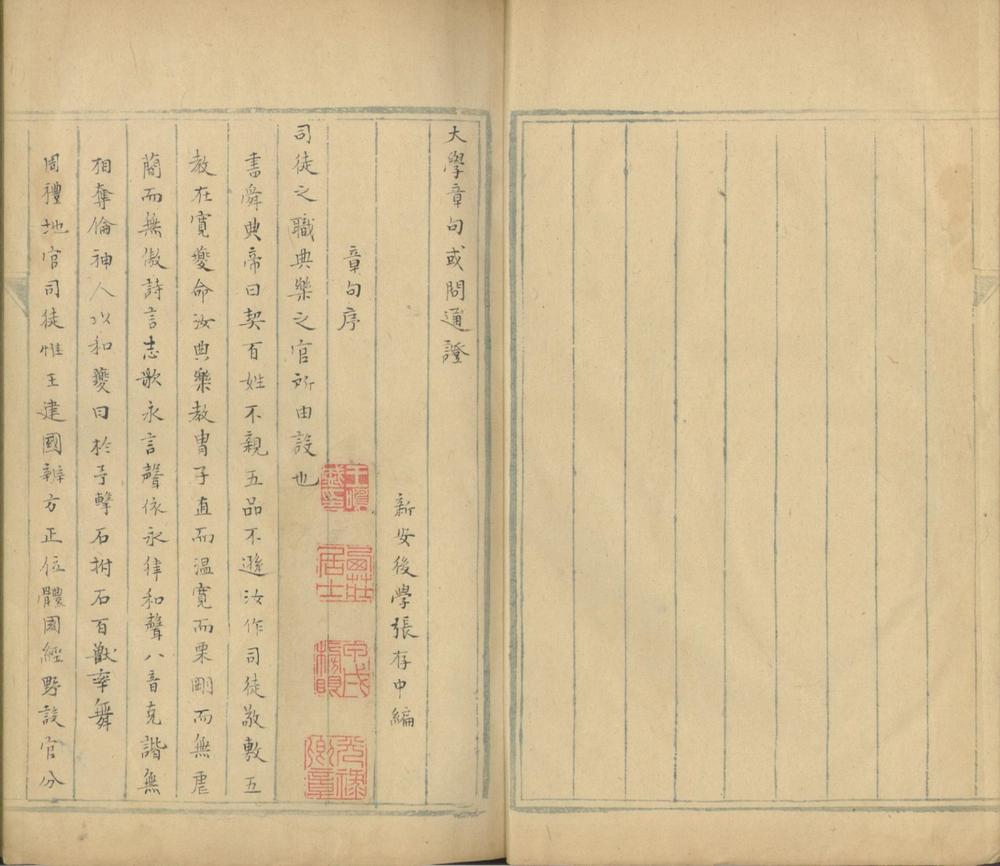 大學章句或問通證
新安後學張存中編
章句序
司徒之職典樂之官所由設也
書舜典帝曰契百姓不親五品不遜汝作司徒敬敷五
教在寬夔命汝典樂教胄子直而温寬而栗剛而無虐
簡而無傲詩言志歌永言聲依永律和聲八音克諧無
相奪倫神人以和夔曰於予擊石拊石百獸率舞
周禮地官司徒惟王建國辨方正位體國經野設官分
甲戌
榜眼
光祿
卿章
居士